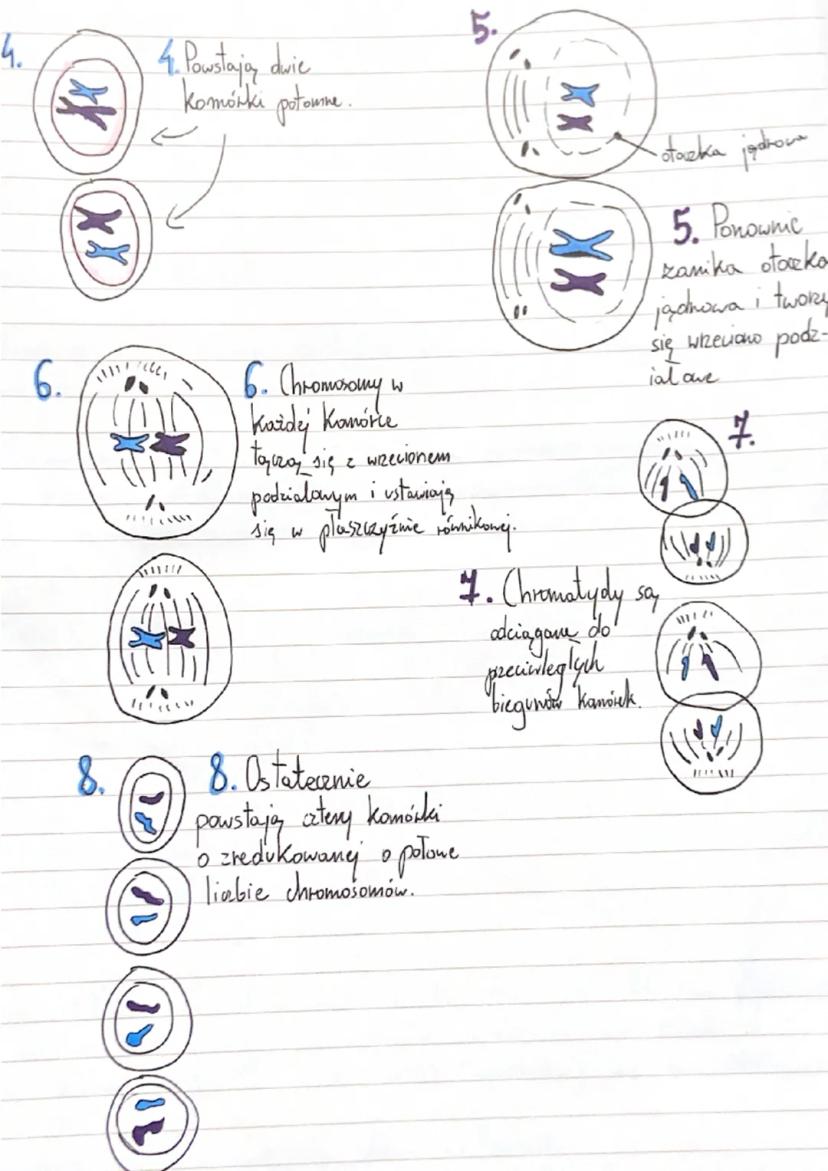 4.
4. Powstają dwie
komórki potomne.
5.
otoczka jądrowa
5. Ponownie
zanika otoczka
jądrowa i tworzy
się wrzeciono podz-
iałowe
6.
6. Chromosomy w
każdej komórce
łączą się z wrzecionem
podziałowym i ustawiają
się w płaszczyźnie równikowej.
7.
7. Chromatydy są
odciągane do
przeciwległych
biegunów komórek.
8.
8. Ostatecznie
powstają cztery komórki
o zredukowanej o połowę
liczbie chromosomów.